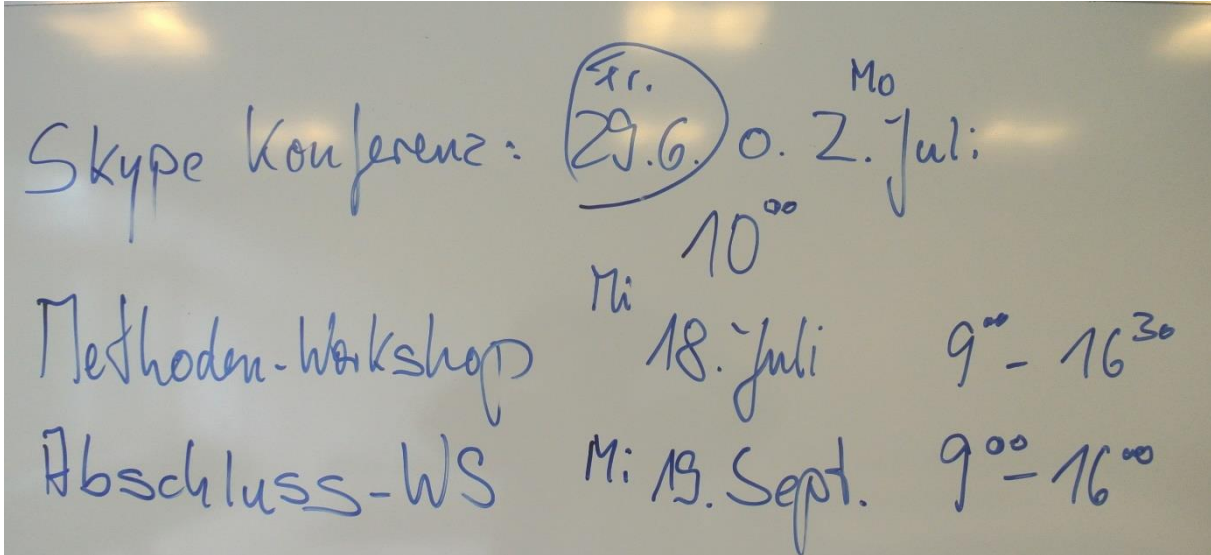 Fr. Mo
Skype Konferenz: 29.6. o. 2. Juli
10⁰⁰
Methoden-Workshop Mi 18. Juli 9⁰⁰ - 16³⁰
Abschluss-WS Mi 19. Sept. 9⁰⁰ - 16⁰⁰